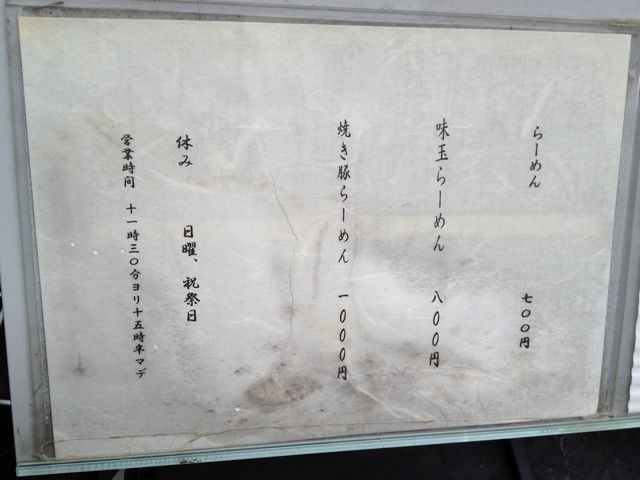 らーめん 七〇〇円
味玉らーめん 八〇〇円
焼き豚らーめん 一〇〇〇円
休み 日曜、祝祭日
営業時間 十一時三〇分ヨリ十五時半マデ